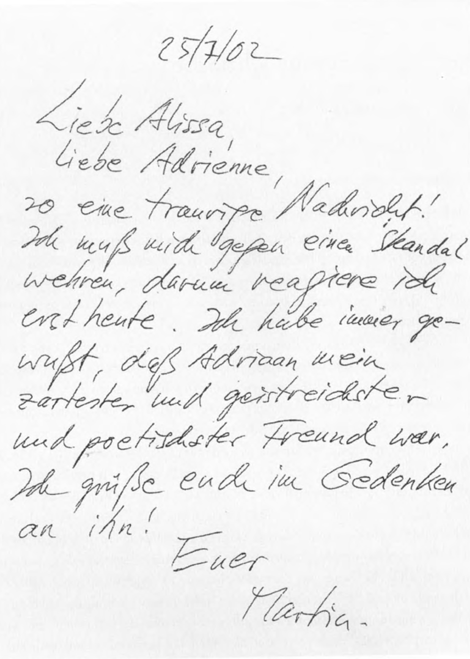 25/7/02
Liebe Alissa,
liebe Adrienne,
so eine traurige Nachricht!
Ich muß mich gegen einen Skandal
wehren, darum reagiere ich
erst heute. Ich habe immer ge-
wußt, daß Adriaan mein
zartester und geistreichster
und poetischster Freund war.
Ich grüße euch im Gedenken
an ihn!
Euer
Martin.